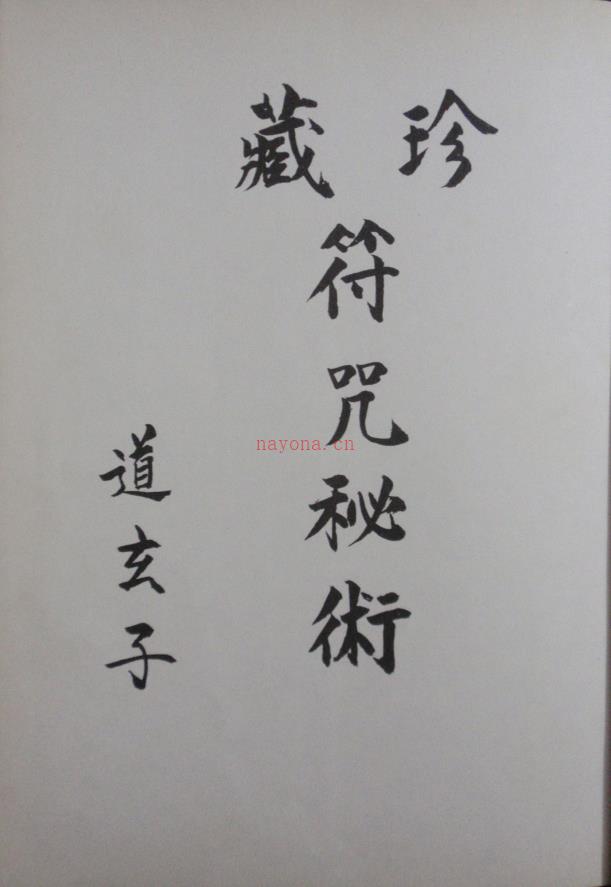 珍藏
符咒秘術
道玄子
nayona.cn